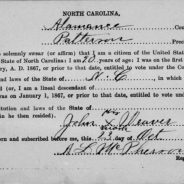 NORTH CAROLINA,
Alamance
Patterson
solemnly swear (or affirm) that I am a citizen of the United States
State of North Carolina: I am 30 years of age: I was on
ary, A. D. 1867, or prior to that date, entitled to vote under the Con
laws of the State of N. C.
) or, I am a lineal descendant of
was on January 1, 1867, or prior to that date, entitled to vote under
titution and laws of the State of
in he then resided).
his
John X Weaver
mark
and subscribed before me, this 23 day of Oct